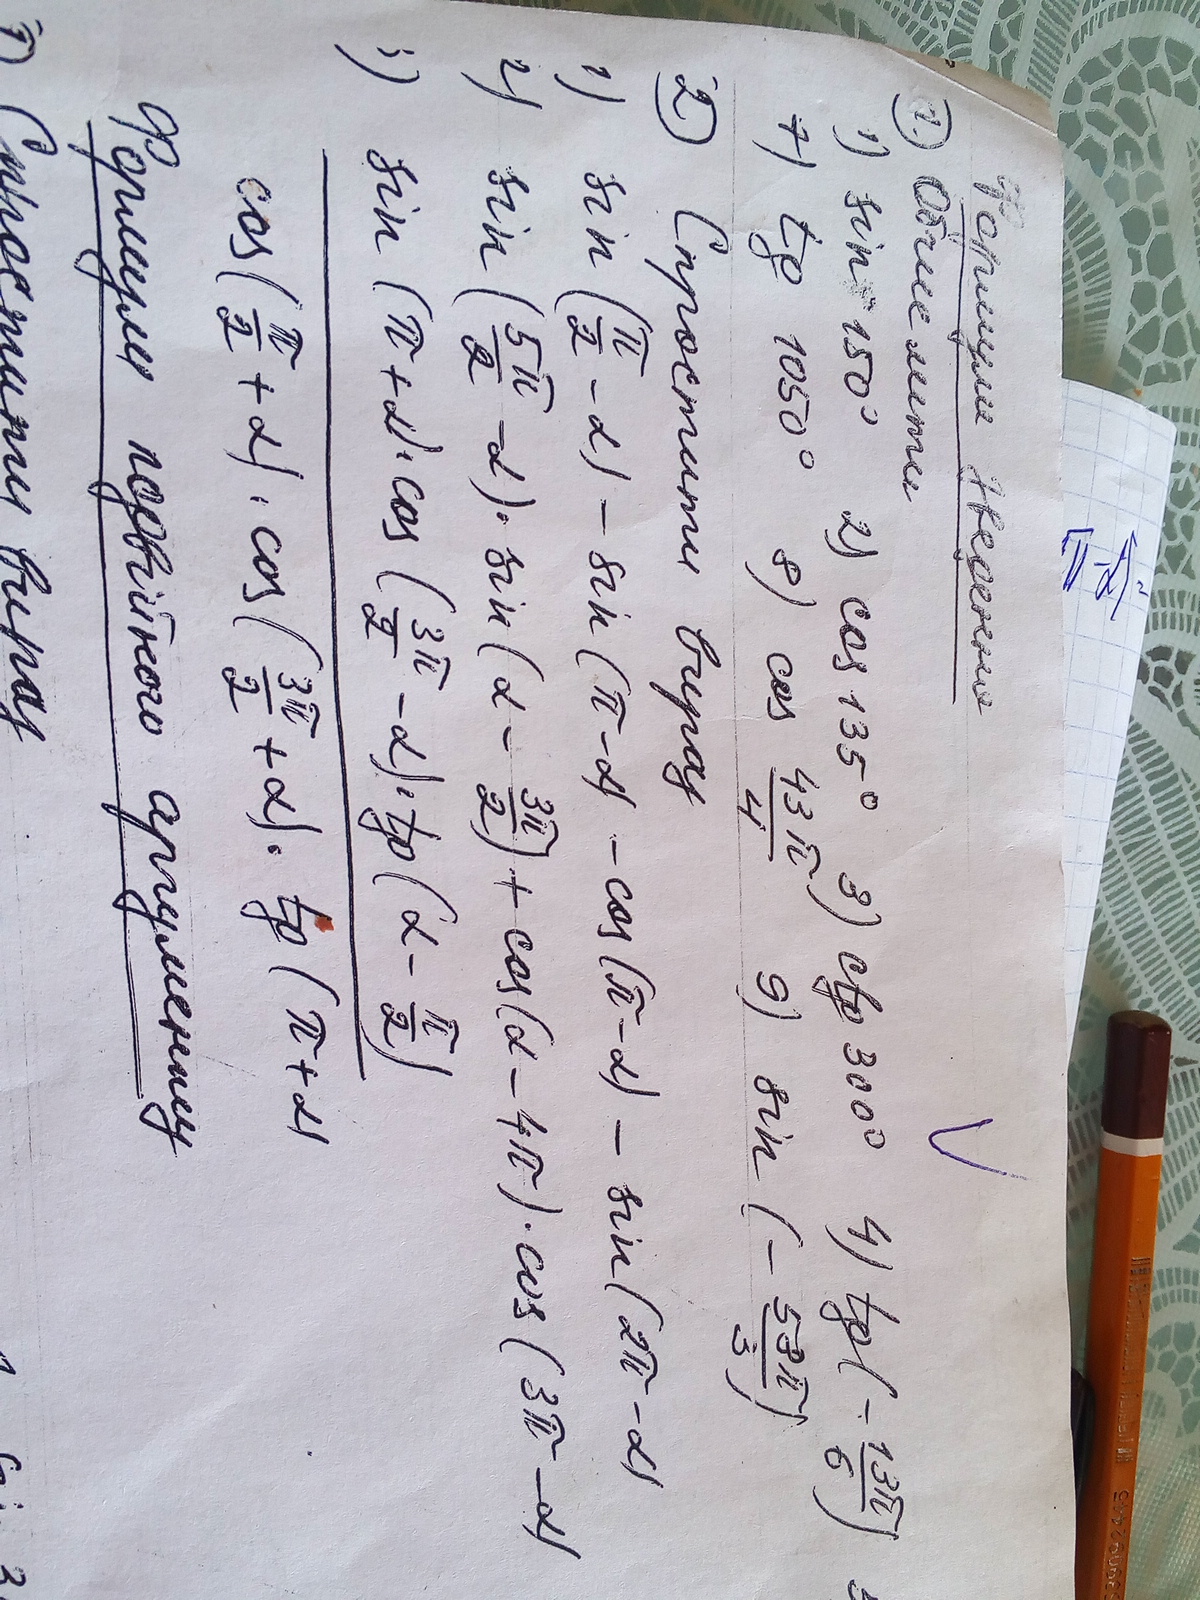 Формули зведення
1.) Обчислити
1) sin 150° 2) cos 135° 3) ctg 300° 4) tg(-13π/6)
7) tg 1050° 8) cos 43π/4 9) sin (-58π/3)
2) Спростити вираз
1) sin (π/2 -α) - sin (π-α) - cos(π-α) - sin(2π-α)
2) sin (5π/2 -α)·sin(α- 3π/2) + cos(α-4π)·cos(3π-α)
3) sin (π+α)·cos (3π/2 -α)·tg (α- π/2)
cos(π/2 +α)·cos(3π/2 +α)· tg (π+α)
Формули подвійного аргументу
1) Спростити вираз
π-α)=